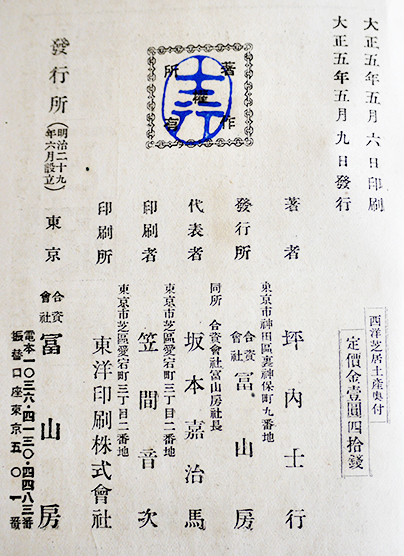 大正五年五月六日印刷
大正五年五月九日發行
西洋芝居土產奧付
定價金壹圓四拾錢
著作
權
所有
士行
著者 坪內士行
東京市神田區裏神保町九番地
發行所 合資會社 冨山房
同所 合資會社冨山房社長
代表者 坂本嘉治馬
東京市芝區愛宕町三丁目二番地
印刷者 笠間音次
東京市芝區愛宕町三丁目二番地
印刷所 東洋印刷株式會社
發行所 (明治二十九年六月設立) 東京 合資會社 冨山房
電本一〇三六・四一三〇・四四八三番
振替口座東京五〇一番